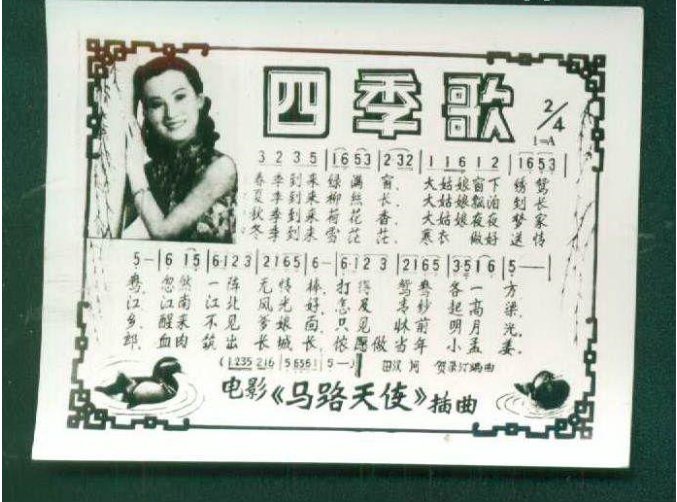 四季歌
2/4
1=A
3 2 3 5 | 1 6 5 3 | 2·3 2 | 1 1 6 1 2 | 1 6 5 3
春季到来绿满窗、大姑娘窗下绣鸳
夏季到来柳丝长、大姑娘飘泊到长
秋季到来荷花香、大姑娘夜夜梦家
冬季到来雪茫茫、寒衣做好送情
5 - | 6 1 5 | 6·1 2 3 | 2 1 6 5 | 6 - | 6·1 2 3 | 2 1 6 5 | 3 5 1 6 | 5 - - |
鸯、忽然一阵无情棒、打得鸳鸯各一方
江、江南江北风光好、怎及青纱起高粱、
乡、醒来不见爹娘面、只见床前明月光、
郎、血肉筑出长城长、侬愿做当年小孟姜、
( 1235 216 | 5 | 5 - )
田汉词 贺录汀编曲
电影《马路天使》插曲